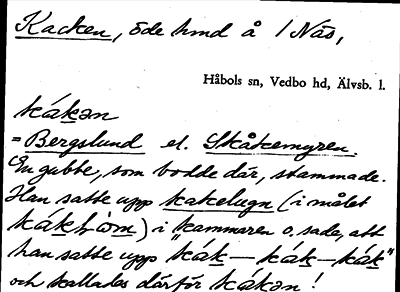 Kacken, öde hmd å / Näs,
Håbols sn, Vedbo hd, Älvsb. l.
kákən
= Bergslund el. Skåkemyren.
En gubbe, som bodde där, stammade.
Han satte upp kakelugn (i målet
) i kammaren o. sade, att
han satte upp "kák – kák – kák"
och kallades därför kákən!